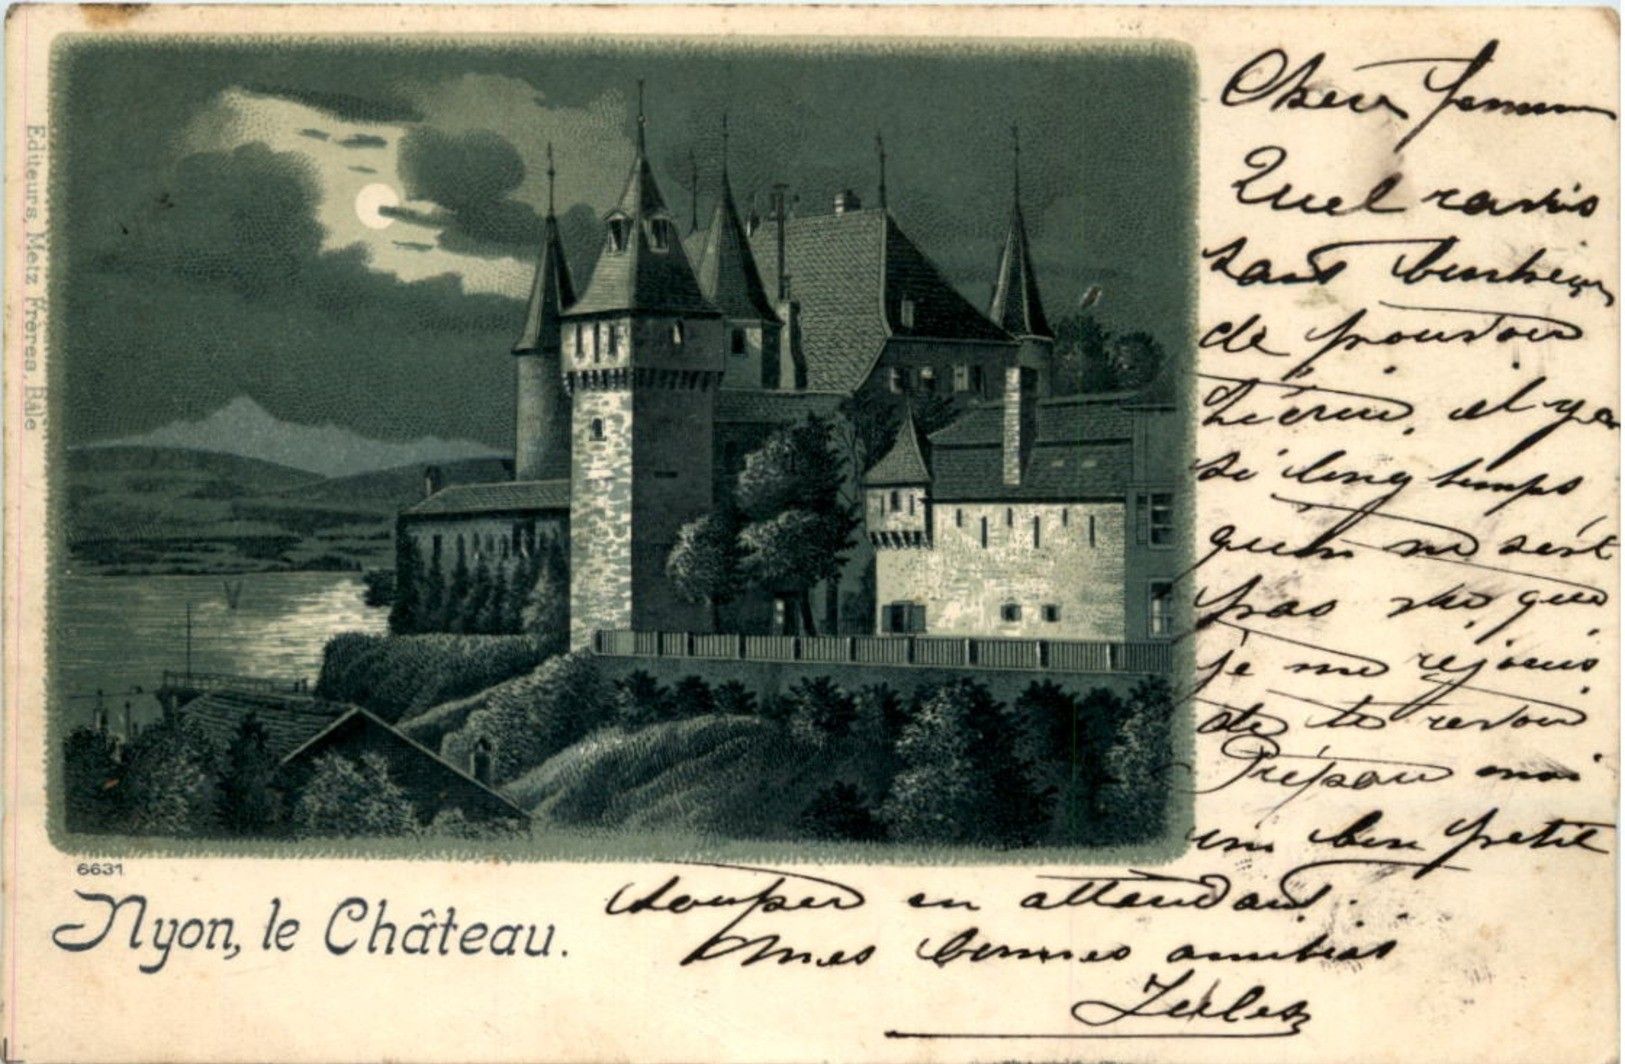 Editeurs, Metz Frères, Bâle
6631
Nyon, le Château.
Quel
de pouvoir
il y a
si longtemps
qu'on ne s'est
pas vu, que
je me rejouis
de te revoir
Prépare moi
un bon petit
souper en attendant.
Mes bonnes amitiés
Jules